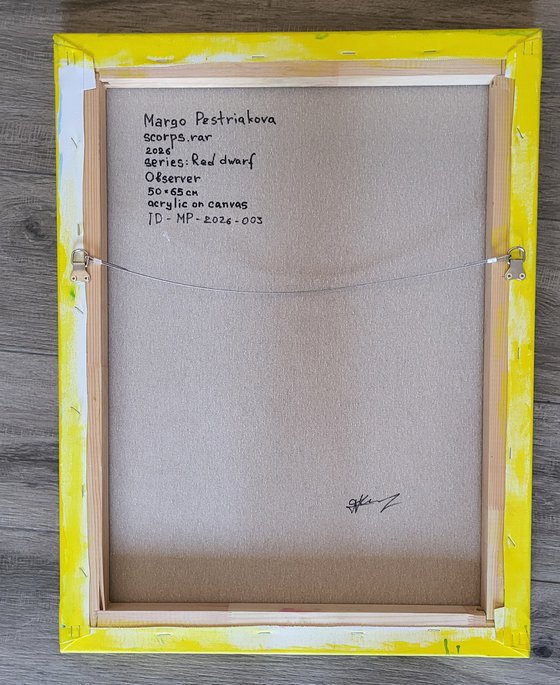 Margo Pestriakova
scorps.rar
2026
series: Red dwarf
Observer
50×65 cm
acrylic on canvas
ID-MP-2026-003